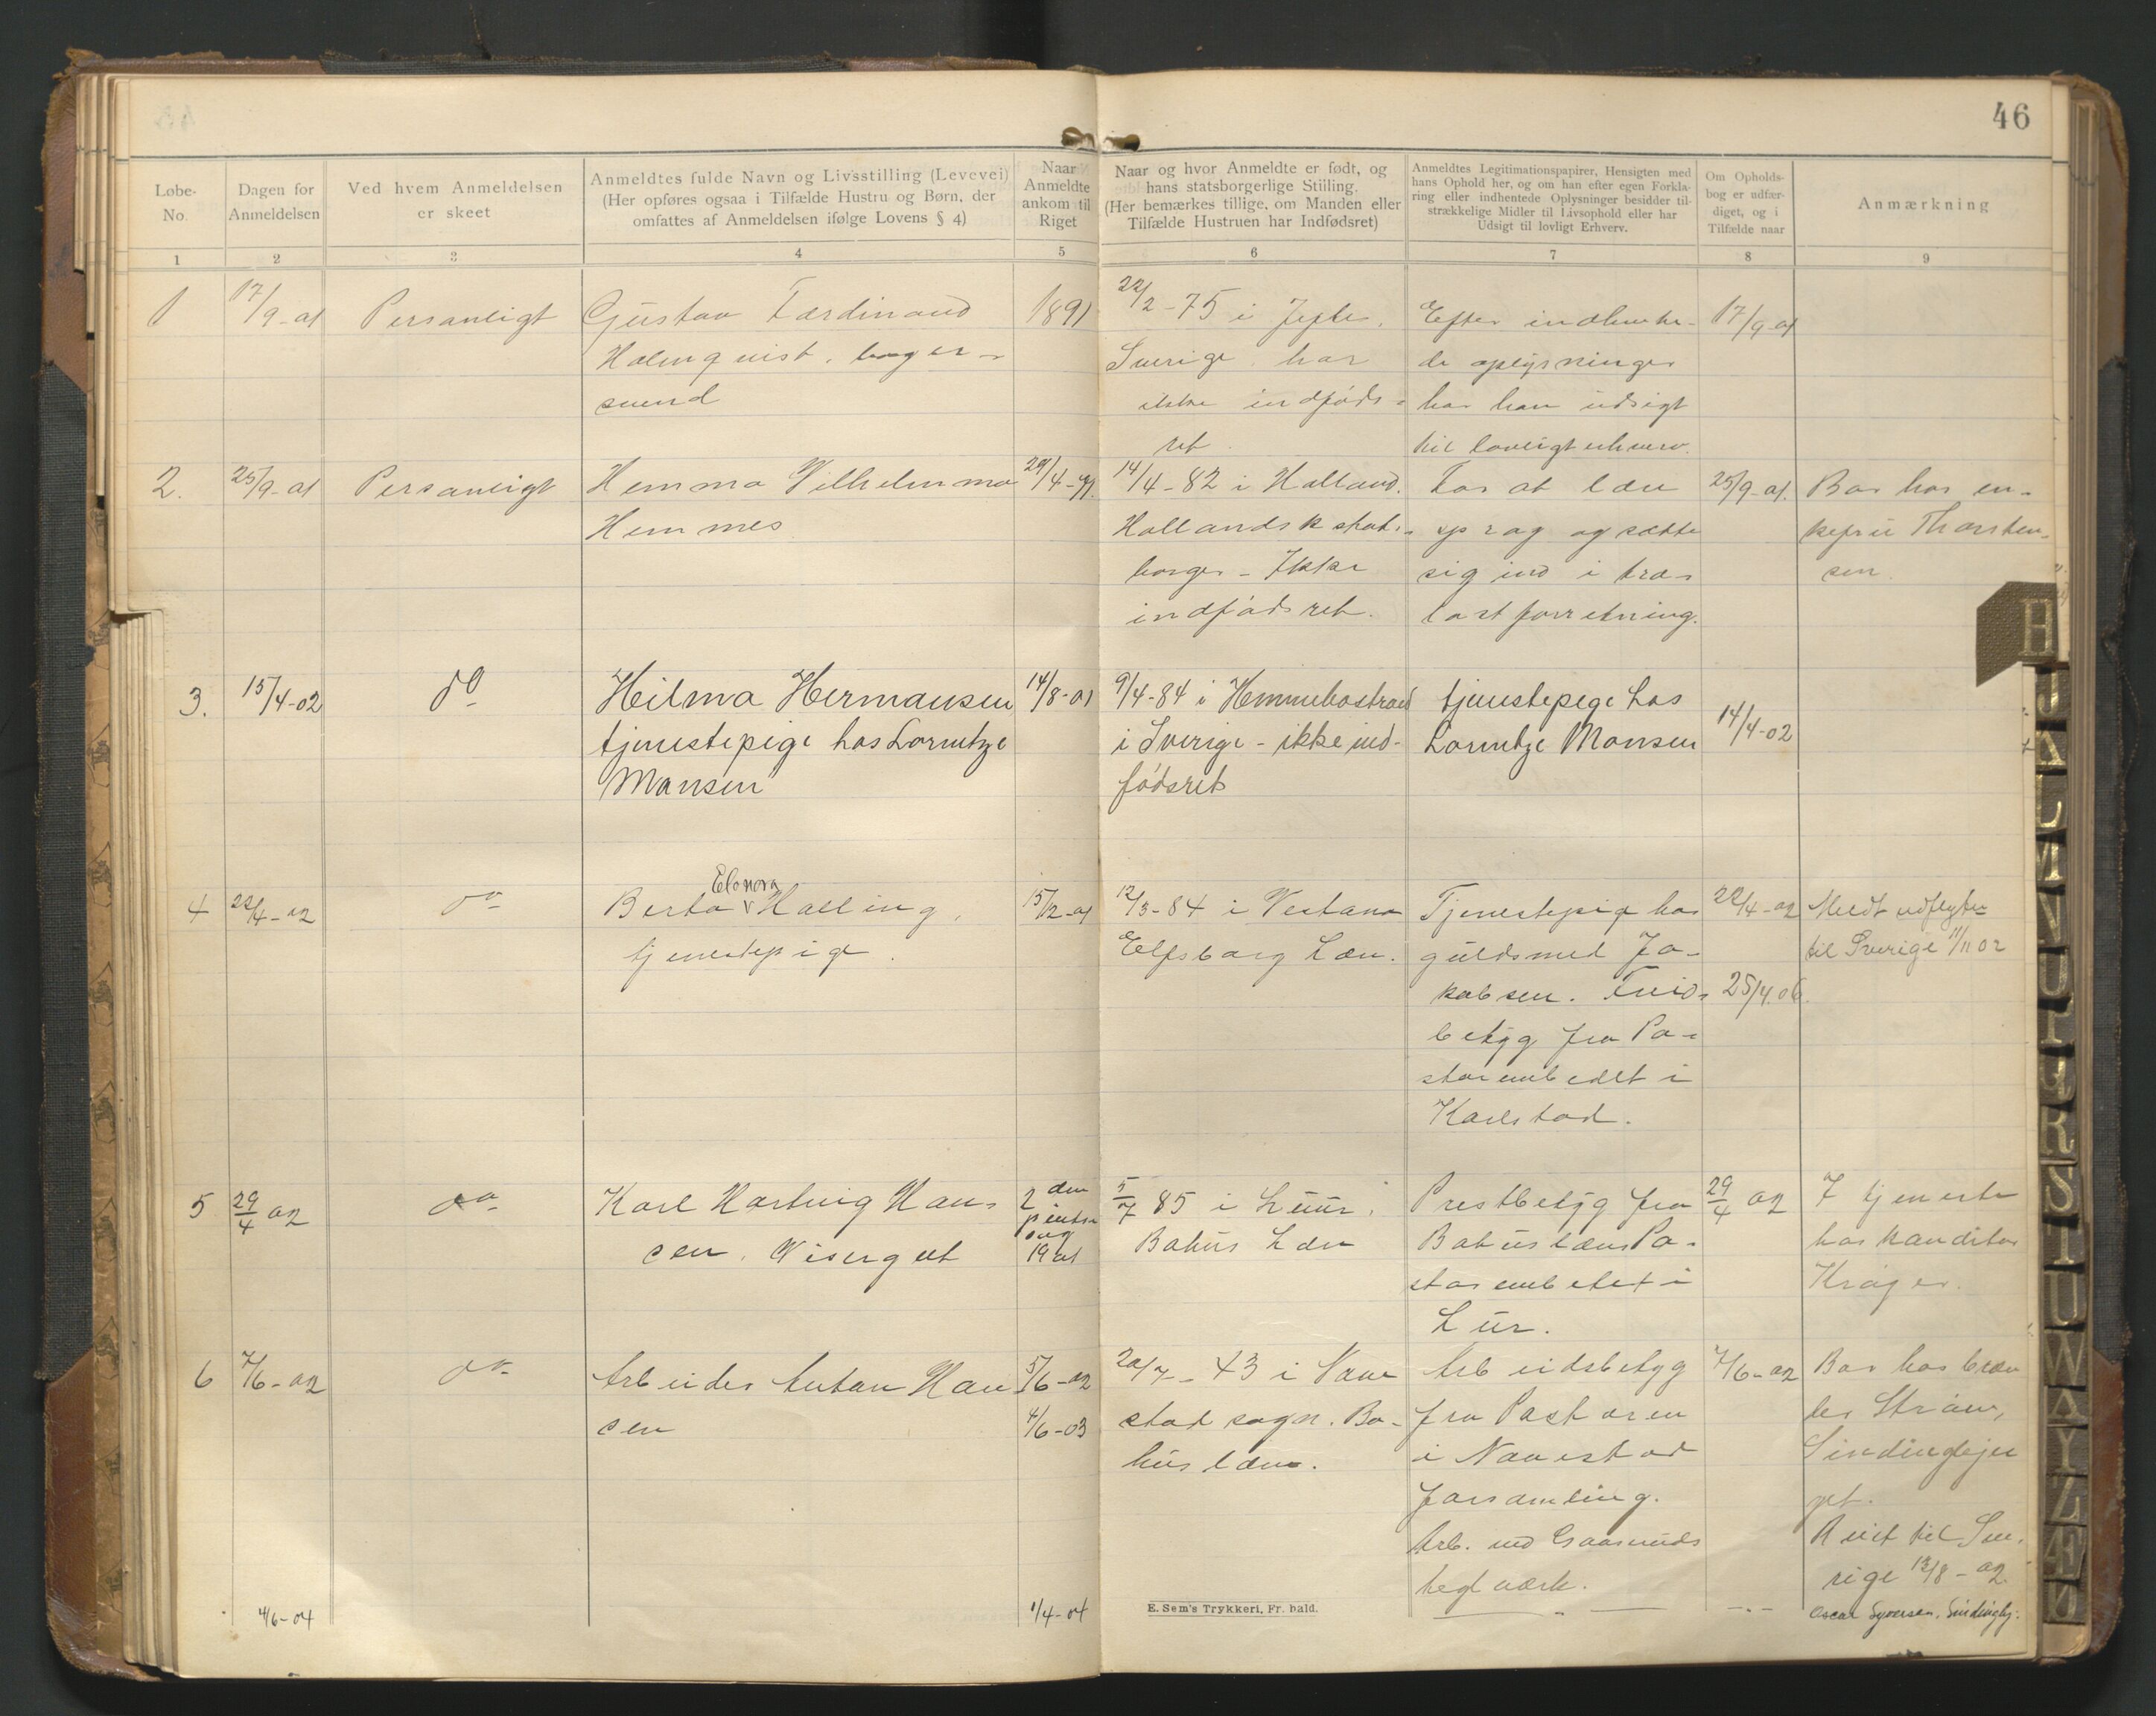 46
Løbe-
No.
Dagen for
Anmeldelsen
Ved hvem Anmeldelsen
er skeet
Anmeldtes fulde Navn og Livsstilling (Levevei)
(Her opføres ogsaa i Tilfælde Hustru og Børn, der
omfattes af Anmeldelsen ifølge Lovens § 4)
Naar
Anmeldte
ankom til
Riget
Naar og hvor Anmeldte er født, og
hans statsborgerlige Stilling.
(Her bemærkes tillige, om Manden eller
Tilfælde Hustruen har Indfødsret)
Anmeldtes Legitimationspapirer, Hensigten med
hans Ophold her, og om han efter egen Forkla-
ring eller indhentede Oplysninger besidder til-
strækkelige Midler til Livsophold eller har
Udsigt til lovligt Erhverv.
Om Opholds-
bog er udfær-
diget, og i
Tilfælde naar
Anmærkning
1 2 3 4 5 6 7 8 9
1
17/9-01
Personligt
Gustav Ferdinand
Holmquist, bager-
svend
1891
22/2-75 i
Sverige. har
ikke indføds-
ret.
Efter indhente-
de oplysninger
har han udsigt
til lovligt erhverv.
17/9-01
2.
25/9-01
Personligt
Hemmo Wilhelm
Hemmes
14/4-82 i Holland.
Hollandsk stats-
borger - Ikke
indfødsret.
For at lære
sprog og sætte
sig ind i træ-
lastforretning.
25/9-01.
Bor hos en-
kefru Thorsten-
sen.
3.
15/4-02
do
Hilma Hermansen
tjenestepige hos Lorentze
Monsen
14/8-01
9/4-84 i Hemmebostrand
i Sverige - ikke ind-
fødsret
tjenestepige hos
Lorentze Monsen
14/4-02
4
22/4-02
do
Elonora
Berta Halling,
tjenestepige.
15/12-01
12/3-84 i
Elfsborg Læn.
Tjenestepige hos
guldsmed Ja-
kobsen. Freid-
betyg fra Pa-
storembedet i
Karlstad.
22/4-02
25/4.06.
Meldt udflyttet
til Sverige 11/11 02
5
29/4 02
do
Karl Hartvig Han-
sen. Visergut
2den
19 01
5/7 85 i Luur,
Bohus Læn
Prestbetyg fra
Bohuslæns Pa-
storembetet i
Lur.
29/4 02
I tjeneste
hos konditor
Krøger.
6
7/6-02
do
Arbeider Anton Han
sen
5/6-02
4/6-03
20/7-43 i Nave
stad sogn. Bo-
huslæn.
Arbeidsbetyg
fra Pastoren
i Navestad
forsamling.
Arb. ved
teglværk.
7/6-02
Bor hos
Strøm,
Sindinglejer
get.
Reist til Sve-
rige 13/8-02.
4/6-04
1/4-04
E. Sem's Trykkeri, Fr. hald.
Oscar Syversen, Sindinglej.
H
J
K
L
M
N
O
P
R
S
T
U
W
Y
Z
Æ
Ø